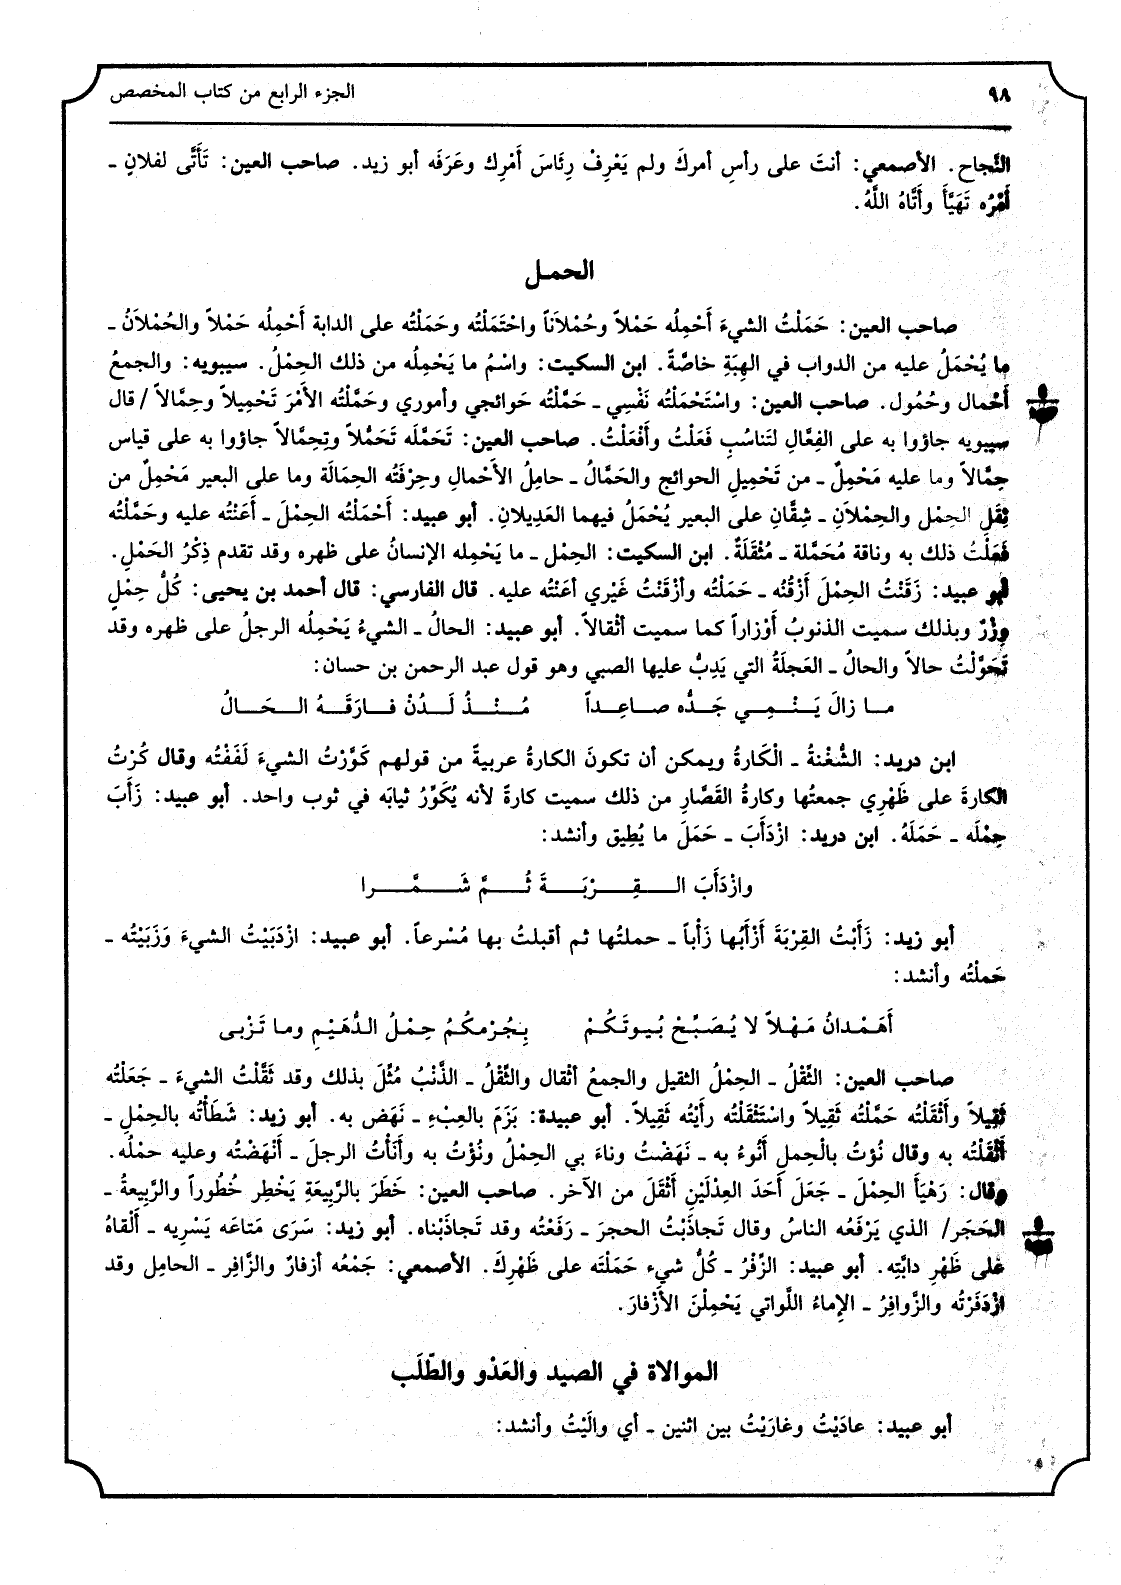 ٩٨ الجزء الرابع من كتاب المخصص
النَّجاح. الأصمعي: أنتَ على رأسِ أمركَ ولم يَعْرِفْ رِئَاسَ أَمْرِك وعَرَفَه أبو زيد. صاحب العين: تَأَتَّى لفلانٍ ـ
أَمْرُه تَهَيَّأَ وأَتَّاهُ اللَّهُ.
الحمـل
صاحب العين: حَمَلْتُ الشيءَ أَحْمِلُه حَمْلاً وحُمْلاَناً واحْتَمَلْته وحَمَلْتُه على الدابة أَحْمِلُه حَمْلاً والحُمْلاَنُ ـ
ما يُحْمَلُ عليه من الدواب في الهِبَةِ خاصَّةً. ابن السكيت: واسْمُ ما يَحْمِلُه من ذلك الحِمْلُ. سيبويه: والجمعُ
أَحْمال وحُمُول. صاحب العين: واسْتَحْمَلْته نَفْسِي ـ حَمَّلْته حَوائجي وأموري وحَمَّلْته الأمْرَ تَحْمِيلاً وحِمَّالاً / قال
سيبويه جاؤوا به على الفِعَّالِ لتَناسُبِ فَعَلْت وأَفْعَلْتُ. صاحب العين: تَحَمَّلَه تَحَمُّلاً وتِحِمَّالاً جاؤوا به على قياس
حِمَّالاً وما عليه مَحْمِلٌ ـ من تَحْمِيلِ الحوائج والحَمَّالُ ـ حامِلُ الأَحْمالِ وحِرْفَتُه الحِمَالَة وما على البعير مَحْمِلٌ من
ثِقَلِ الحِمْل والحِمْلاَنِ ـ شِقَّانِ على البعير يُحْمَلُ فيهما العَدِيلانِ. أبو عبيد: أَحْمَلْتُه الحِمْلَ ـ أعَنْتُه عليه وحَمَّلْتُه
فَعَلْتُ ذلك به وناقة مُحَمَّلة ـ مُثْقَلَةٌ. ابن السكيت: الحِمْل ـ ما يَحْمِله الإنسانُ على ظهره وقد تقدم ذِكْرُ الحَمْلِ.
أبو عبيد: زَقَنْتُ الحِمْلَ أَزْقُنُه ـ حَمَلْتُه وأزْقَنْتُ غَيْري أعَنْتُه عليه. قال الفارسي: قال أحمد بن يحيى: كُلُّ حِمْلٍ
وِزْرٌ وبذلك سميت الذنوبُ أوْزاراً كما سميت أثْقالاً. أبو عبيد: الحالُ ـ الشيءُ يَحْمِلُه الرجلُ على ظهره وقد
تَحَوَّلْتُ حالاً والحالُ ـ العَجلَةُ التي يَدِبُّ عليها الصبي وهو قول عبد الرحمن بن حسان:
مـا زالَ يَـنْـمِـي جَـدُّه صـاعِـداً مُـنْـذُ لَـدُنْ فـارَقَـهُ الـحَـالُ
ابن دريد: الشُّغْنةُ ـ الْكَارةُ ويمكن أن تكونَ الكارةُ عربيةً من قولهم كَوَّرْتُ الشيءَ لَفَفْتُه وقال كُرْتُ
الكارةَ على ظَهْرِي جمعتُها وكارةُ القَصَّارِ من ذلك سميت كارةً لأنه يُكَوِّرُ ثيابَه في ثوب واحد. أبو عبيد: زَأَبَ
حِمْلَه ـ حَمَلَهُ. ابن دريد: ازْدَأَبَ ـ حَمَلَ ما يُطِيق وأنشد:
وازْدَأَبَ الـقِـرْبَـةَ ثُـمَّ شَـمَّـرا
أبو زيد: زَأَبْتُ القِرْبَةَ أزْأَبُها زَأْباً ـ حملتُها ثم أقبلتُ بها مُسْرعاً. أبو عبيد: ازْدَبَيْتُ الشيءَ وَزَبَيْتُه ـ
حَملْتُه وأنشد:
أَهَـمْـدانُ مَـهْـلاً لا يُـصَـبِّـحْ بُـيـوتَـكُـمْ بِـجُـرْمـكُـمُ حِـمْـلُ الـدُّهَـيْـمِ ومـا تَـزْبـى
صاحب العين: الثِّقْلُ ـ الحِمْلُ الثقيل والجمعُ أثْقال والثِّقْلُ ـ الذَّنْبُ مُثِّلَ بذلك وقد ثَقَّلْتُ الشيءَ ـ جَعَلْتُه
ثَقِيلاً وأَثْقَلْته حَمَّلْته ثَقِيلاً واسْتَثْقَلْته رأيْته ثَقِيلاً. أبو عبيدة: بَزَمَ بالعِبْءِ ـ نَهَض به. أبو زيد: شَطَأْتُه بالحِمْلِ ـ
أَثْقَلْتُه به وقال نُؤْت بالْحِملِ أَنُوءُ به ـ نَهَضْتُ وناءَ بي الحِمْلُ ونُؤْت به وأَنَأْتُ الرجلَ ـ أَنْهَضْتُه وعليه حمْلُه.
وقال: رَهْيَأَ الحِمْلَ ـ جَعَلَ أَحَدَ العِدْلَيْنِ أَثْقَلَ من الآخر. صاحب العين: خَطَرَ بالرَّبِيعَةِ يَخْطِر خُطُوراً والرَّبِيعةُ ـ
الحَجَر/ الذي يَرْفَعُه الناسُ وقال تَجاذَبْتُ الحجرَ ـ رَفَعْتُه وقد تَجاذَبْناه. أبو زيد: سَرَى مَتاعَه يَسْرِيه ـ أَلْقاهُ
على ظَهْرِ دابَّتِه. أبو عبيد: الزِّفْرُ ـ كُلُّ شيء حَمَلْتَه على ظَهْرِكَ. الأصمعي: جَمْعُه أزفارٌ والزَّافِر ـ الحامِل وقد
ازْدَفَرْتُه والزَّوافِرُ ـ الإماءُ اللَّواتي يَحْمِلْنَ الأَزْفارَ.
الموالاة في الصيد والعَدْو والطّلَب
أبو عبيد: عادَيْتُ وغارَيْتُ بين اثنين ـ أي والَيْتُ وأنشد: